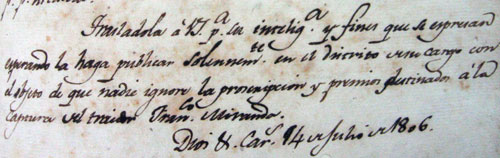 Trasladola á V. p.ª su intelig.ª y fines que se expresan
esperando la haga publicar solennem.te en el distrito de su cargo con
el objeto de que nadie ignore la proscripcion y premios destinados á la
captura del traidor Fran.co Miranda.
Dios &. Car.s 14 de Julio de 1806.